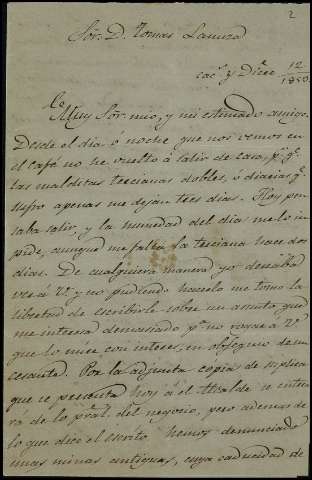 2
Sor. D. Tomas
casa y Dicre 12/1850
Muy Sor. mio, y mi estimado amigo.
Desde el dia ó noche que nos vemos en
el café no he vuelto á salir de casa, p.r q.e
las malditas tercianas dobles, ó diarias q.e
sufro apenas me dejan tres dias. Hoy pen
saba salir, y la humedad del dia me lo im
pide, aunque me falta la terciana hace dos
dias. De cualquiera manera yo deseaba
ver á V. y no pudiendo hacerlo me tomo la
libertad de escribirle sobre un asunto que
me interesa demasiado p.a no rogar á V.
que lo mire con interes, en obsequio de un
cesante. Por la adjunta copia de suplica
que se presenta hoy á el Alcalde se entera
rá de lo pral. del negocio, pero ademas de
lo que dice el escrito hemos denunciado
unas minas antiguas, cuya caducidad de